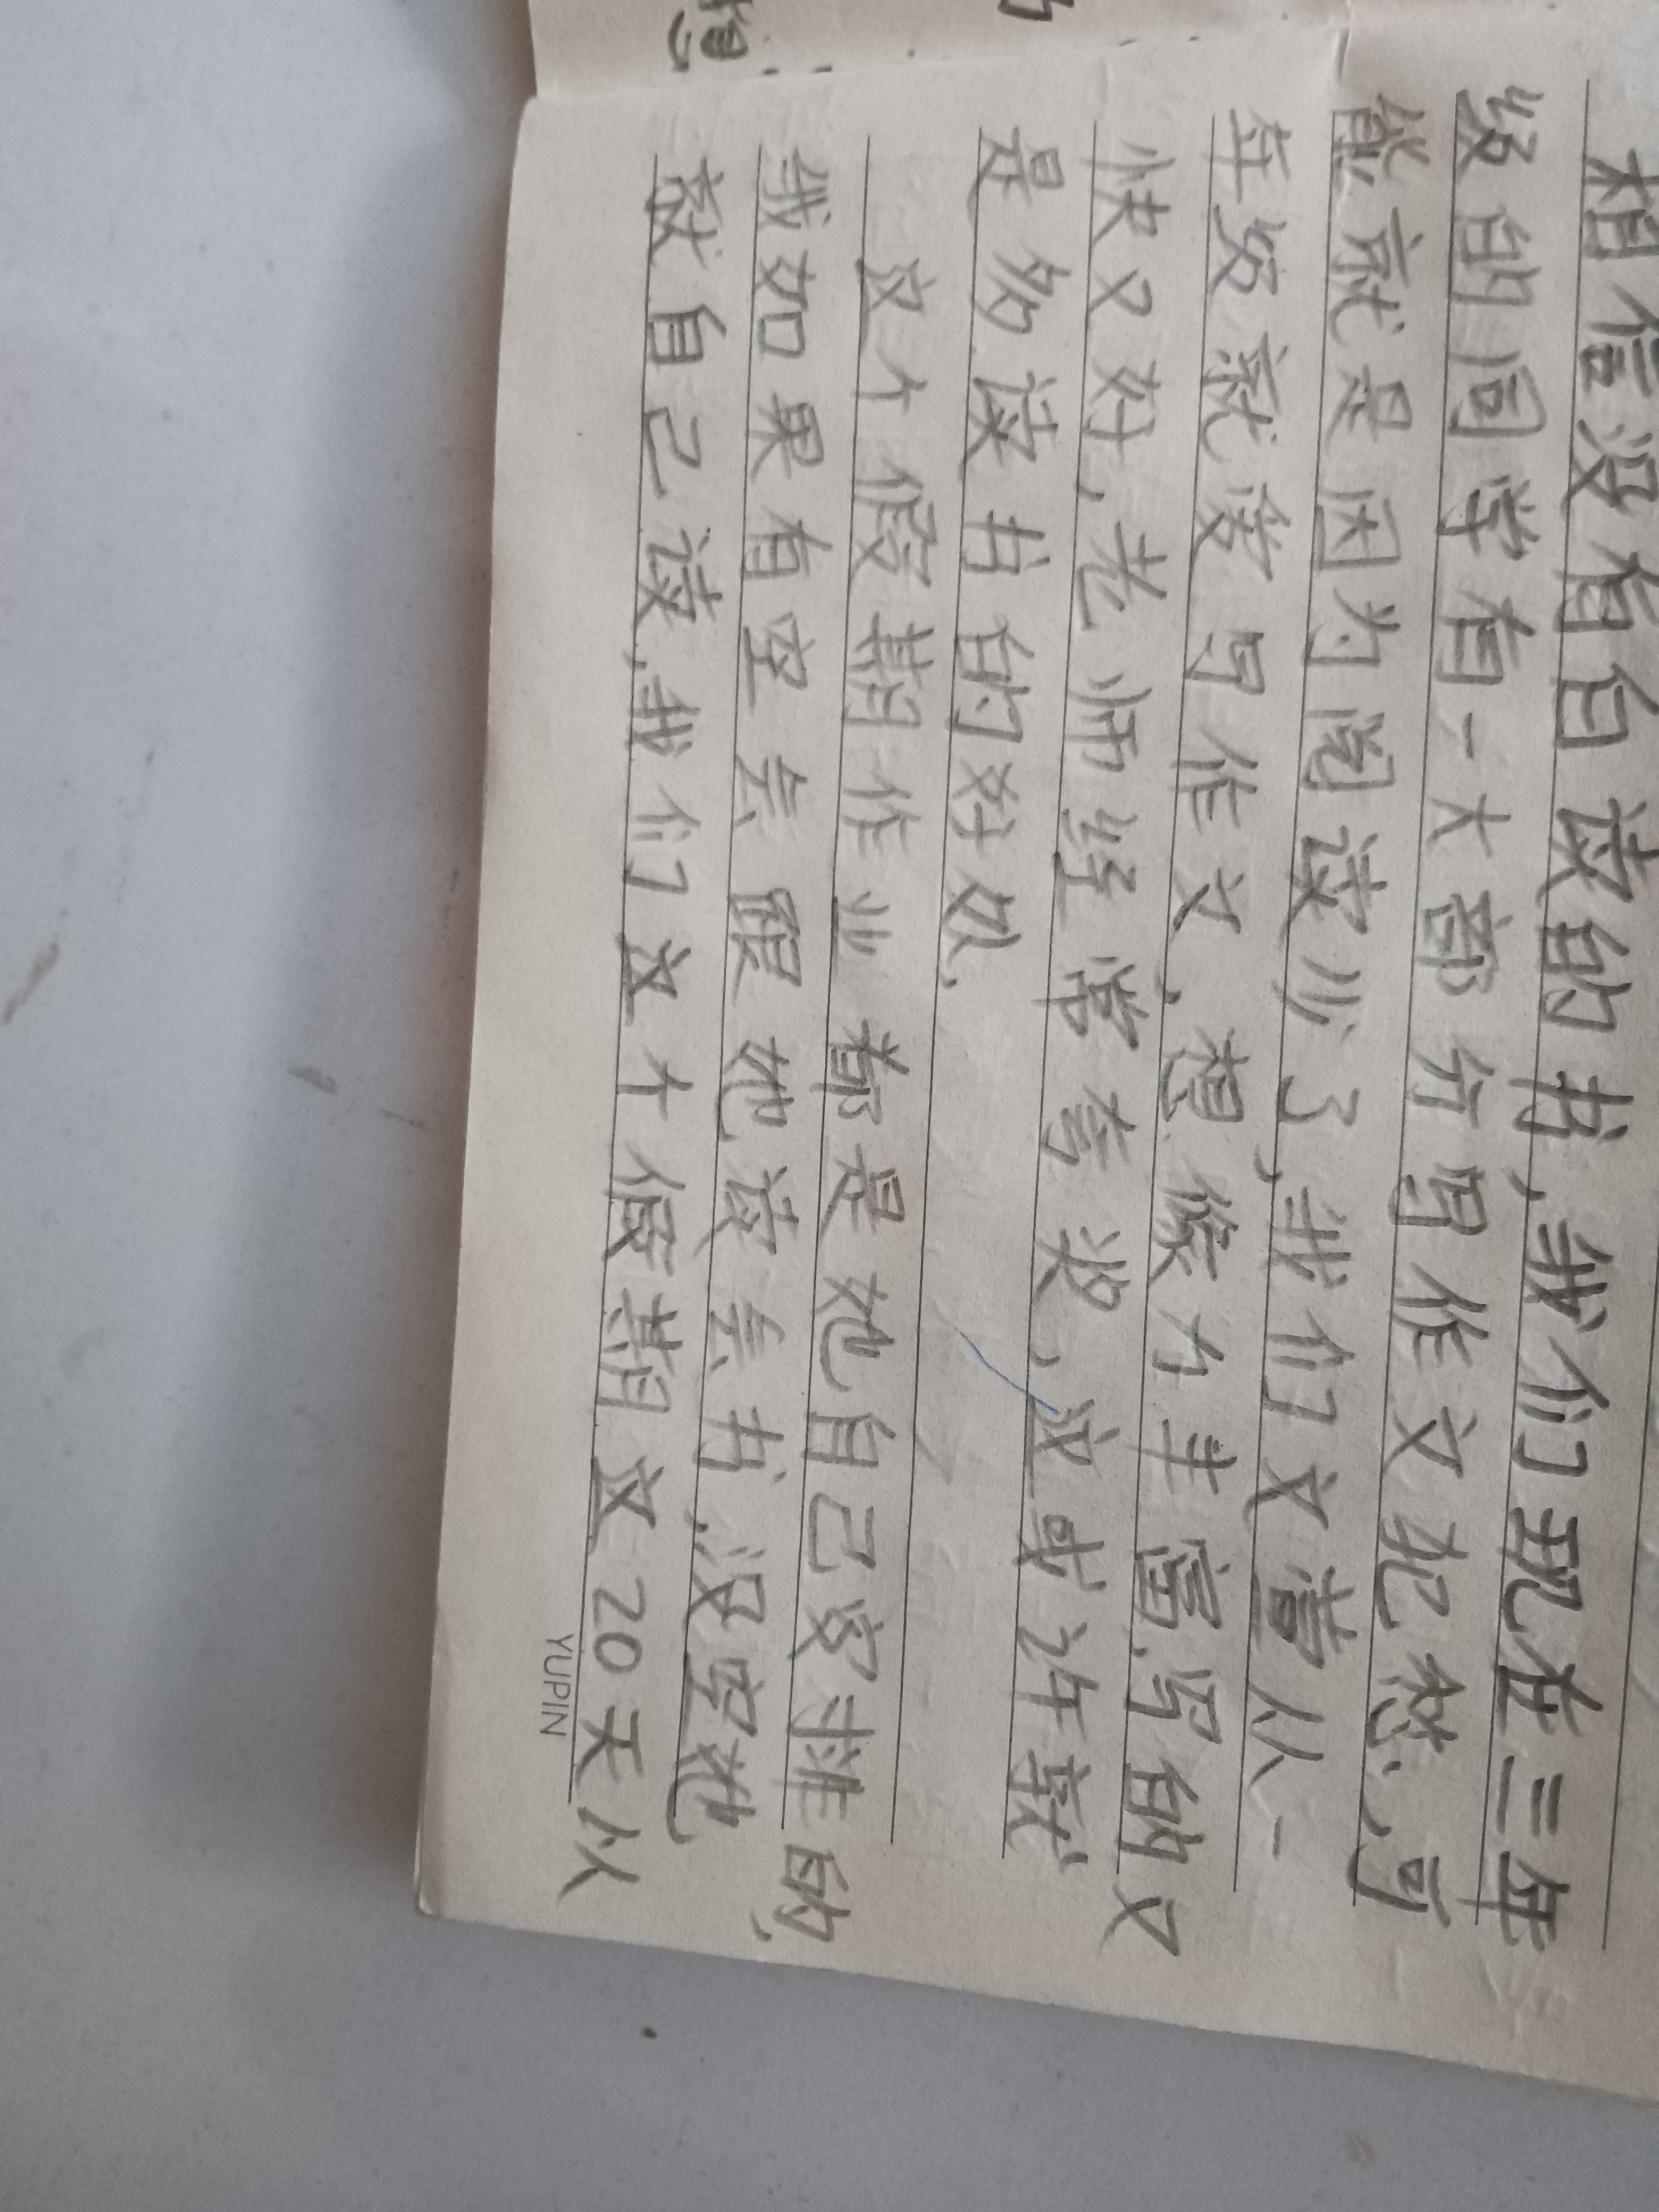 相信没有白读的书,我们现在三年
级的同学有一大部分写作文犯愁,可
能就是因为阅读少了,我们文萱从一
年级就接写作文,想像力丰富,写的又
快又好,老师经常夸奖,这或许就
是多读书的好处,
这个假期作业都是她自己安排的,
我如果有空会跟她读会书,没空她
就自己读,我们这个假期这20天从
YUPIN
想
的